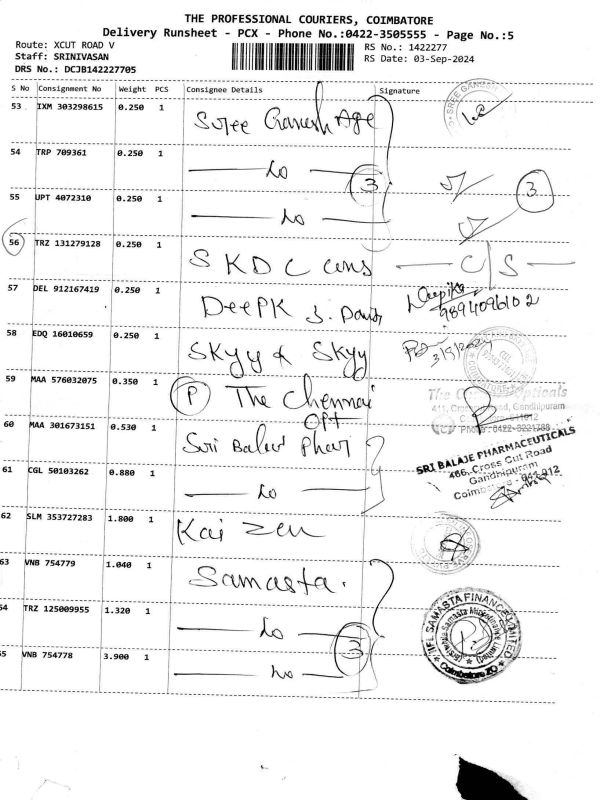 THE PROFESSIONAL COURIERS, COIMBATORE
Delivery Runsheet - PCX - Phone No.:0422-3505555 - Page No.:5
Route: XCUT ROAD V
Staff: SRINIVASAN
DRS No.: DCJB142227705
RS No.: 1422277
RS Date: 03-Sep-2024
S No Consignment No Weight PCS Consignee Details Signature
53 IXM 303298615 0.250 1 Sree Ganesh Age
SREE GANESH
54 TRP 709361 0.250 1 Do
3
3
55 UPT 4072310 0.250 1 Do
56 TRZ 131279128 0.250 1 SKDC cons C/S
57 DEL 912167419 0.250 1 DeePK J. Dav
Deepika
9894096102
58 EDQ 16010659 0.250 1 SKyy & SKyy
3/9/2024
59 MAA 576032075 0.350 1 P The Chennai
Opt
The Chennai Opticals
Gandhipuram
Phone: 0422-
60 MAA 301673151 0.530 1 Sri Balaji Phar
SRI BALAJE PHARMACEUTICALS
466, Cross Cut Road
Gandhipuram
61 CGL 50103262 0.880 1 Do
62 SLM 353727283 1.800 1 Kai Zen
63 VNB 754779 1.040 1 Samasta.
54 TRZ 125009955 1.320 1 Do
3
IIFL SAMASTA FINANCE LIMITED
(Formerly known as Samasta Microfinance Limited)
Coimbatore ZO
55 VNB 754778 3.900 1 Do